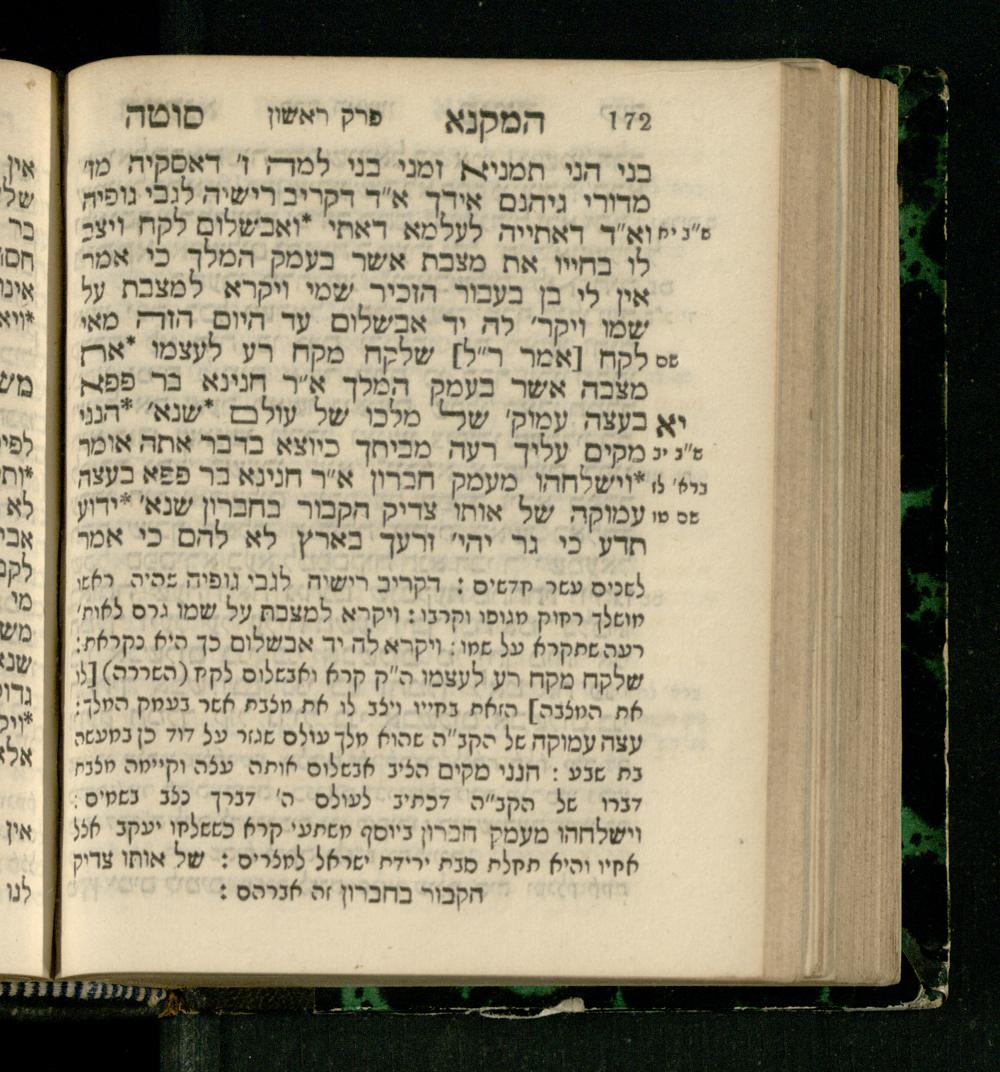 172 המקנא פרק ראשון סוטה
בני הני תמניא זמני בני למה ז׳ דאסקיה מז׳
מדורי גיהנם אידך א״ד דקריב רישיה לגבי גופיה
ש״ב יח וא״ד דאתייה לעלמא דאתי *ואבשלום לקח ויצב
לו בחייו את מצבת אשר בעמק המלך כי אמר
אין לי בן בעבור הזכיר שמי ויקרא למצבת על
שמו ויקר׳ לה יד אבשלום עד היום הזה מאי
שם לקח [אמר ר״ל] שלקח מקח רע לעצמו *את
מצבה אשר בעמק המלך א״ר חנינא בר פפא
יא בעצה עמוק׳ של מלכו של עולם *שנא׳ *הנני
ש״ב יב מקים עליך רעה מביתך כיוצא בדבר אתה אומר
ברא׳ לז *וישלחהו מעמק חברון א״ר חנינא בר פפא בעצה
שם טו עמוקה של אותו צדיק הקבור בחברון שנא׳ *ידוע
תדע כי גר יהי׳ זרעך בארץ לא להם כי אמר
לשנים עשר חדשים : דקריב רישיה לגבי גופיה שהיה ראשו
מושלך רחוק מגופו וקרבו : ויקרא למצבת על שמו גרס לאות׳
רעה שתקרא על שמו : ויקרא לה יד אבשלום כך היא נקראת :
שלקח מקח רע לעצמו ה״ק קרא ואבשלום לקח (השררה) [לו
את המצבה] הזאת בחייו ויצב לו את מצבת אשר בעמק המלך :
עצה עמוקה של הקב״ה שהוא מלך עולם שגזר על דוד כן במעשה
בת שבע : הנני מקים הציב אבשלום אותה עצה וקיימה מצבת
דברו של הקב״ה דכתיב לעולם ה׳ דברך נצב בשמים :
וישלחהו מעמק חברון ביוסף משתעי קרא כששלחו יעקב אצל
אחיו והיא תחלת סבת ירידת ישראל למצרים : של אותו צדיק
הקבור בחברון זה אברהם :